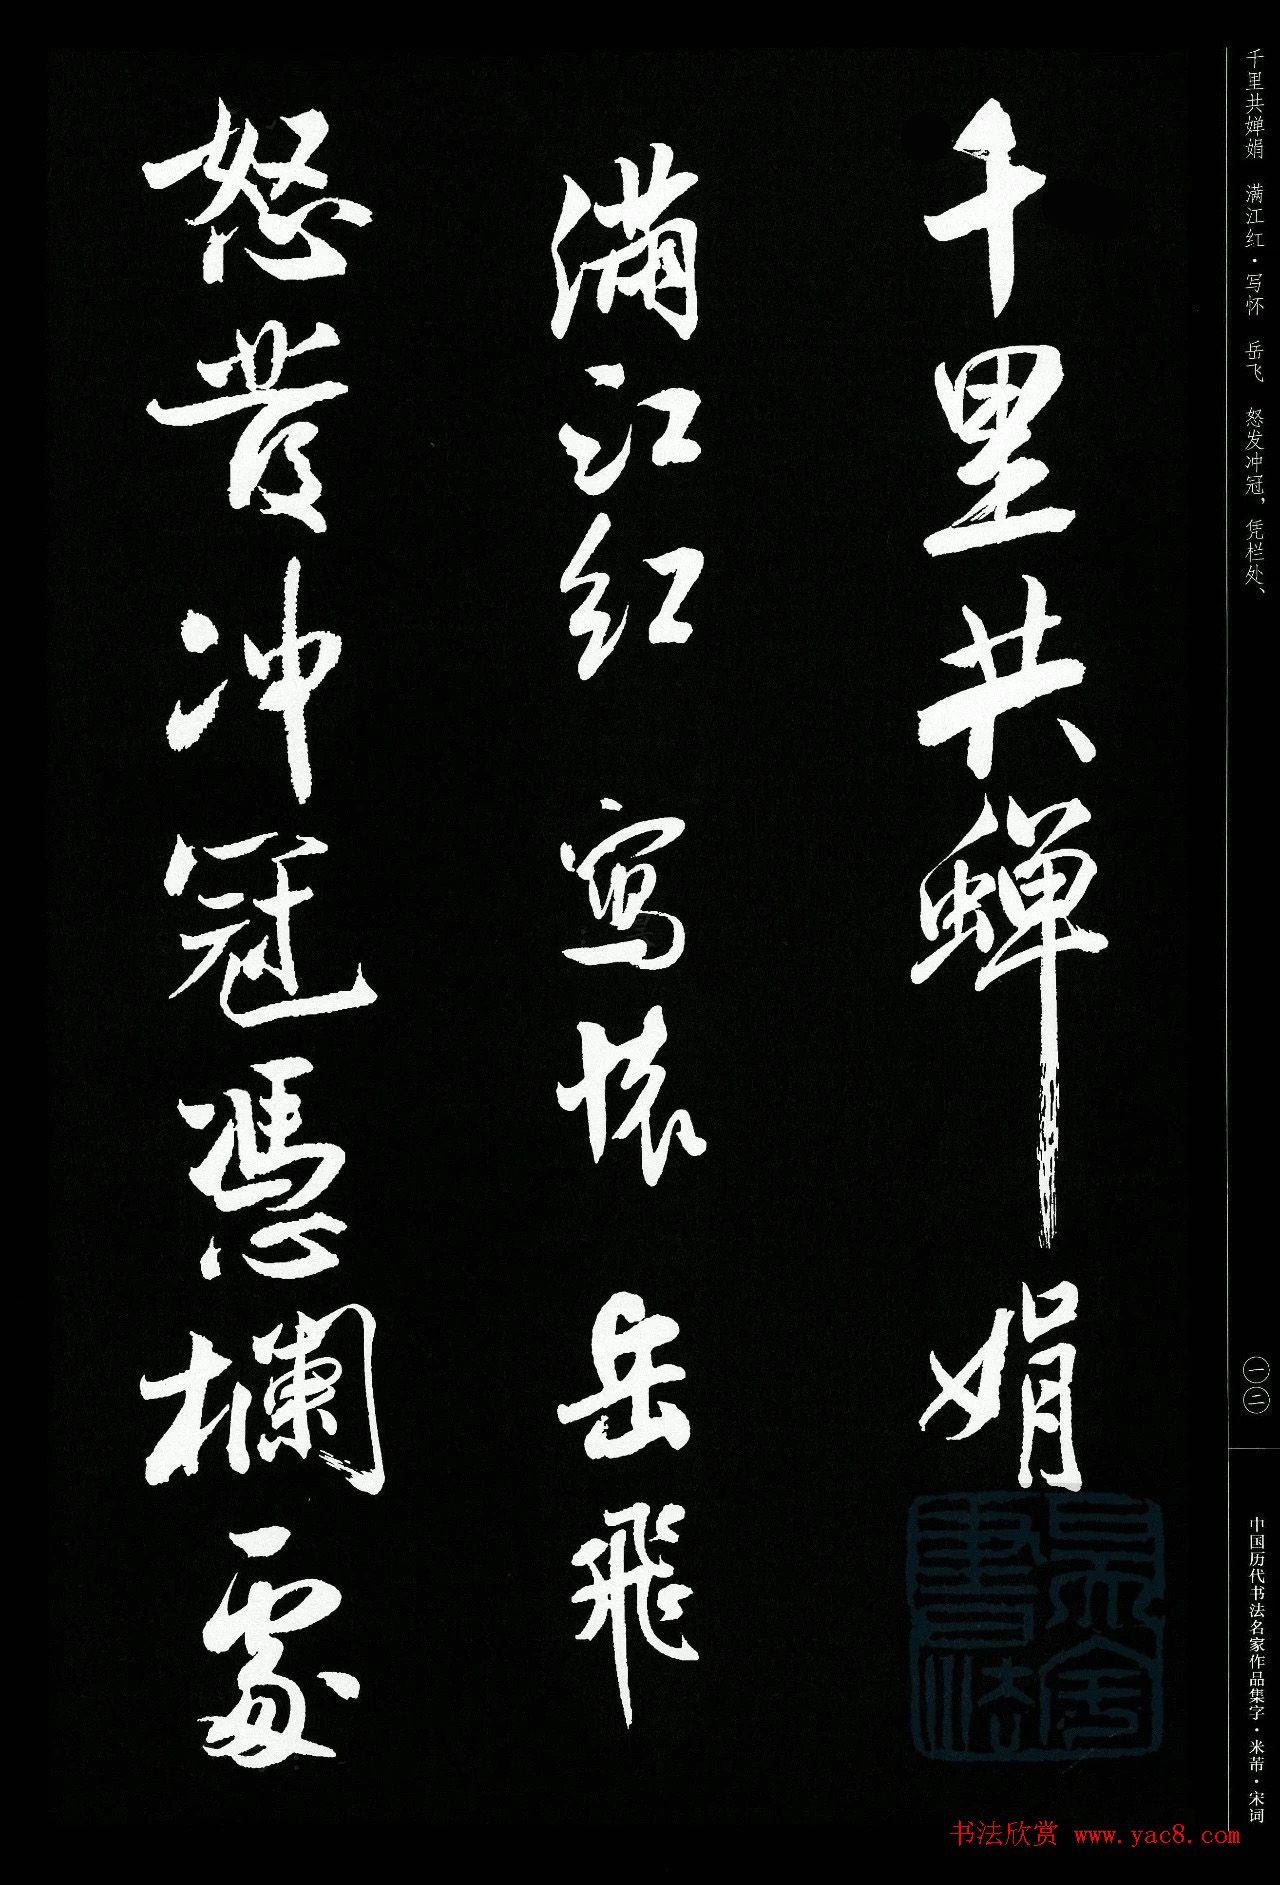 千里共婵娟　满江红·写怀　岳飞　怒发冲冠，凭栏处、
一二
中国历代书法名家作品集字·米芾·宋词
千里共蟬娟
滿江紅　寫懷　岳飛
怒發冲冠憑欄處
书法欣赏 www.yac8.com